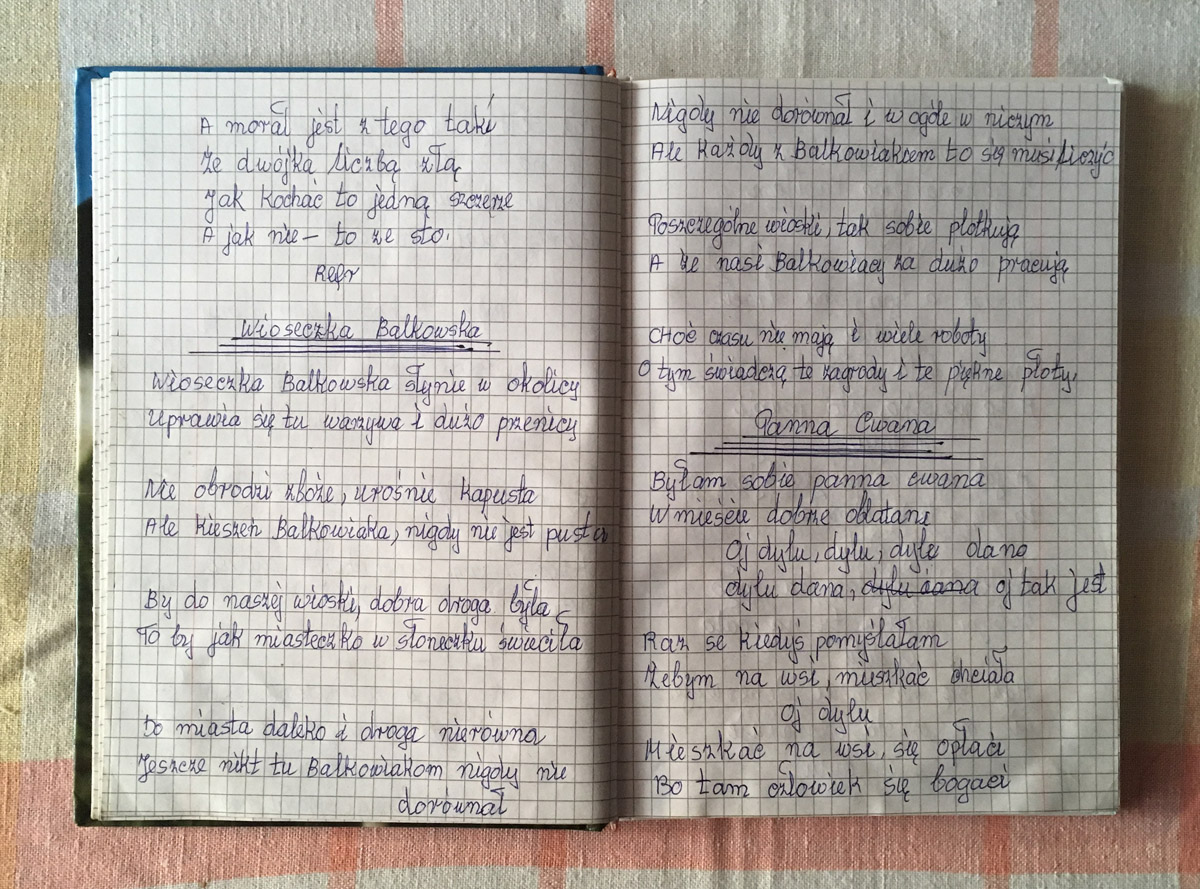 A morał jest z tego taki
Że dwójka liczbą złą
Jak kochać to jedną szczerze
A jak nie – to ze sto.
Refr
Wioseczka Bałkowska
Wioseczka Bałkowska słynie w okolicy
Uprawia się tu warzywa i dużo przenicy
Nie obrodzi zboże, urośnie kapusta
Ale kieszeń Bałkowiaka, nigdy nie jest pusta
By do naszej wioski, dobra droga była
To by jak miasteczko w słoneczku świeciła
Do miasta daleko i droga nierówna
Jeszcze nikt tu Bałkowiakom nigdy nie
dorównał
Nigdy nie dorównał i w ogóle w niczym
Ale każdy z Bałkowiakiem to się musi liczyć
Poszczególne wioski, tak sobie plotkują
A że nasi Bałkowiacy za dużo pracują
CHoć czasu nie mają i wiele roboty
O tym świadczą te zagrody i te piękne płoty,
Panna Cwana
Byłam sobie panna cwana
W mieście dobrze oblatana
Oj dylu, dylu, dylu dana
dylu dana, dylu dana oj tak jest
Raz se kiedyś pomyślałam
Żebym na wsi, mieszkać chciała
Oj dylu
Mieszkać na wsi, się opłaci
Bo tam człowiek się bogaci